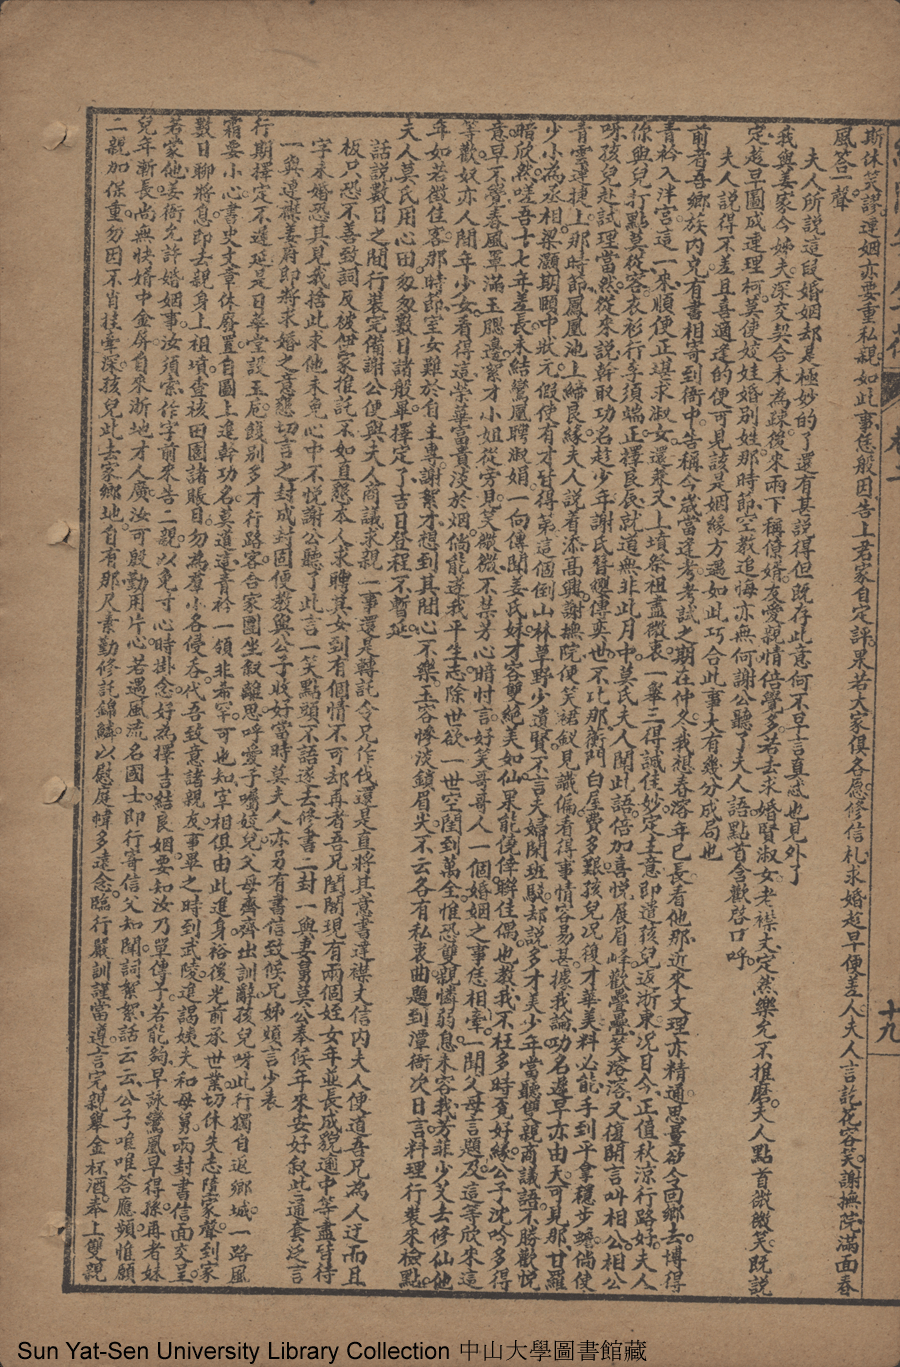 斯休笑謬連姻亦要重私說如此事恁般因告上君家自定評果若大家俱各愿修信札求婚趁早便差人夫人言訖花容笑謝撫院滿面春
風答一聲
夫人所說這段婚姻却是極妙的了還有甚說得但既存此意何不早言真忒也見外了
我與姜家今姊夫深交契合未為疎後來兩下稱僚婿友愛親情倍覺多若去求婚賢淑女老襟丈定然樂允不推磨夫人點首微微笑既說
定趁早圖成連理柯莫使姣娃婚別姓那時節空教追悔亦無何謝公聽了夫人語點首含歡啓口呼
夫人說得不差且喜適逢的便可見該是姻緣方遇如此巧合此事大有幾分成局也
前者吾鄉族內兄有書相寄到衙中告稱今歲當逢考考試之期在仲冬我想春溶年已長看他那近來文理亦精通思量欲令回鄉去博得
青衿入泮宮這一來順便正堪求淑女還來又上墳祭祖盡微衷一舉三得誠佳妙定主意即遣孩兒返浙東况目今正值秋涼行路好夫人
你與兒打點莫從容衣衫行李須端正擇良辰就道無非此月中莫氏夫人聞此語倍加喜悅展眉峰歡疊疊笑溶溶又復開言叫相公相公
呀孩兒赴試理當然從來說幹取功名趁少年謝氏簪纓傳奕世不比那衡門白屋費多艱孩兒况復才華美料必能手到平拿穩步蟾倘使
青雲連捷上那時節鳳凰池上締良緣夫人說看添高興謝撫院便笑裙釵見識偏看得事情容易甚據我論功名遲早亦由天可見那甘羅
少小為丞相梁灝期頤中狀元假使有才皆得第這個倒山林草野少遺賢不言夫婦閑班駁却說多才美少年當聽雙親商議語不勝歡悅
暗欣然嗟吾十七年差長未結鸞凰聘淑娟一向傳聞姜氏妹才容雙絕美如仙果能僥倖聯佳偶也教我不枉多時覓好緣公子沈吟多得
意早不覺春風罩滿玉腮邊絮才小姐從旁見笑微微不禁芳心暗忖言好笑哥哥人一個婚姻之事恁相牽一聞父母言題及這等欣來這
等歡奴亦人間年少女看得這榮華富貴淡於烟倘能遂我平生志除世欲一世空閨到萬全惟恐雙親憐弱息未容我若菲少艾去修仙他
年如若徵佳客那時節室女難於自主專謝絮才想到其間心不樂玉容慘淡鎖眉尖不云各有私衷曲題到潭衙次日言料理行裝來檢點
夫人莫氏用心田匆匆數日諸般畢擇定了吉日登程不暫延
話說數日之間行裝完備謝公便與夫人商議求親一事還是轉託令兄作伐還是直將其意書達襟丈信內夫人便道吾兄為人迂而且
板只恐不善致詞反被他家推託不如直懇本人求聘其女到有個情不可却再者吾兄閨閣現有兩個姪女年並長成貌適中等盡皆待
字未婚恐其見我捨此求他未免心中不悅謝公聽了此言一笑點頭不語遂去修書二封一與妻舅莫公奉候年來安好叙此通套泛言
一與連襟姜府即將求婚之意懇切言之封成封固便教與公子收好當時莫夫人亦另有書信致候兄姊煩言少表
行期擇定不遲延是日華堂設玉卮餞別多才行路客合家團坐叙離思呼愛子囑姣兒父母齊齊出訓辭孩兒呀此行獨自返鄉城一路風
霜要小心書史文章休廢置自圖上進幹功名莫道這青衿一領非希罕可也知宰相俱由此進身裕後光前承世業切休失志墮家聲到家
數日聊將息即去親身上祖墳查核田園諸賬目勿為羣小各侵吞代吾致意諸親友事畢之時到武陵進謁姨夫和母舅兩封書信面交呈
若蒙他姜衙允許婚姻事汝須索作字前來告二親以免寸心時掛念好為擇吉結良姻要知汝乃單傳子若能夠早詠鸞凰早得孫再者妹
兒年漸長尚無快婿中金屏自來浙地才人廣汝可殷勤用片心若遇風流名國士即行寄信父知聞詞絮絮話云云公子唯唯答應頻惟願
二親加保重勿因不肖挂牽深孩兒此去家鄉地自有那尺素勤修託錦鱗以慰庭幃多遠念臨行嚴訓謹當遵言完親舉金杯酒奉上雙親
卷二
十九
Sun Yat-Sen University Library Collection 中山大學圖書館藏